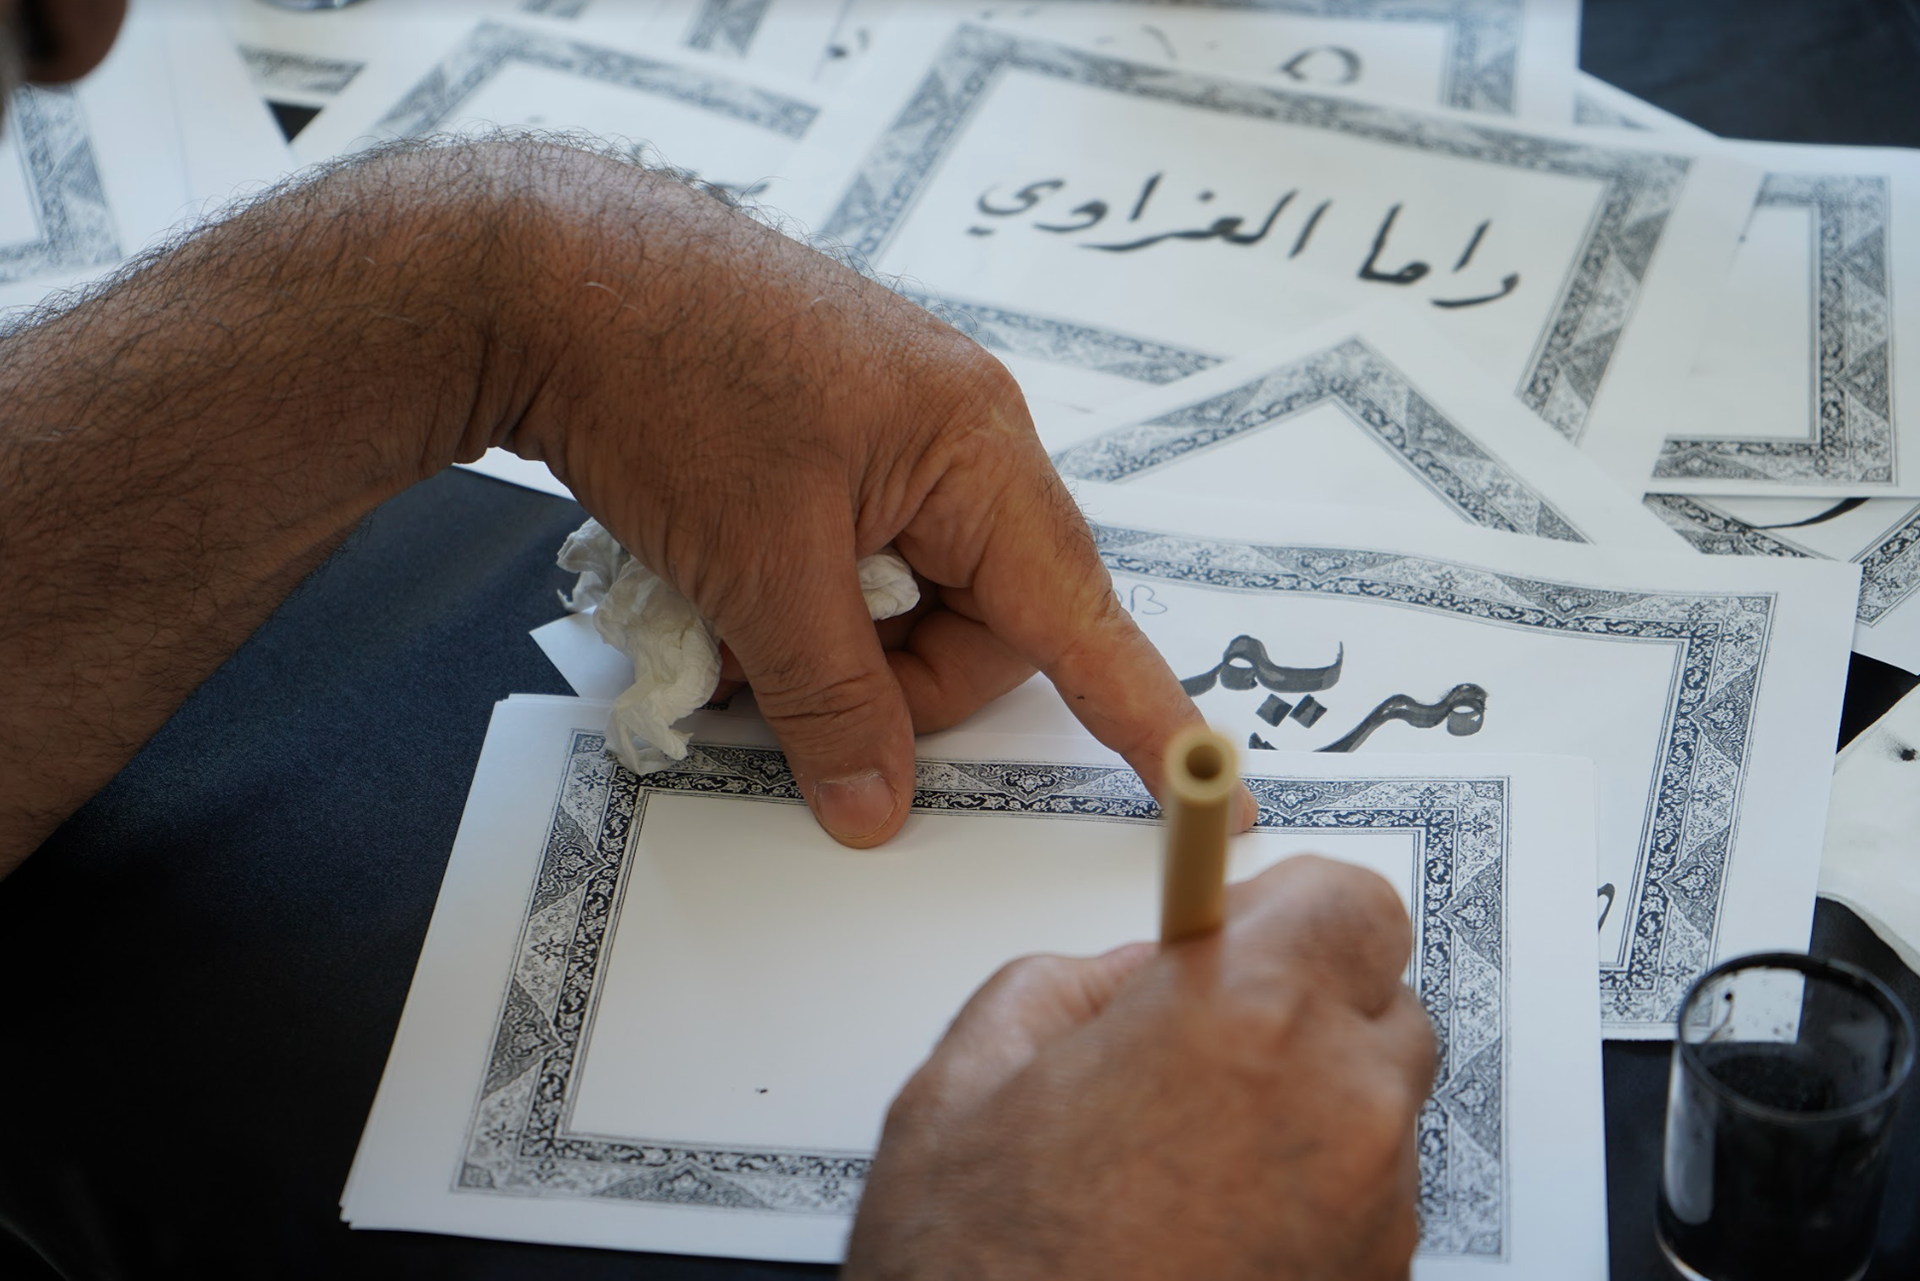 راما العزاوي
مريم